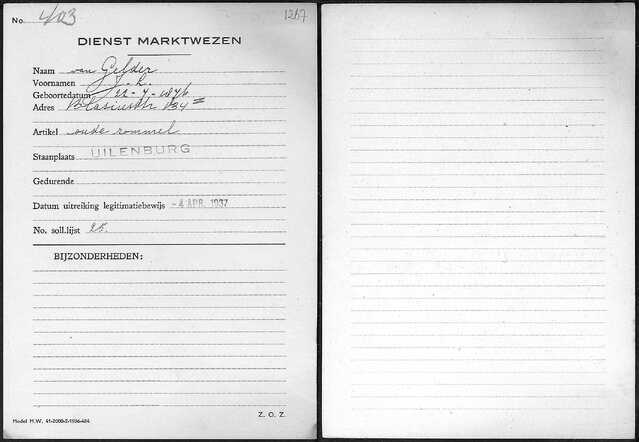 No. 403 1267
DIENST MARKTWEZEN
Naam van Gelder
Voornamen J. L.
Geboortedatum 22-7-1876
Adres Blasiusstr 134 II
Artikel oude rommel
Staanplaats UILENBURG
Gedurende
Datum uitreiking legitimatiebewijs -4 APR. 1937
No. soll.lijst 25.
BIJZONDERHEDEN:
Z. O. Z.
Model M.W. 41-2000-2-1936-484